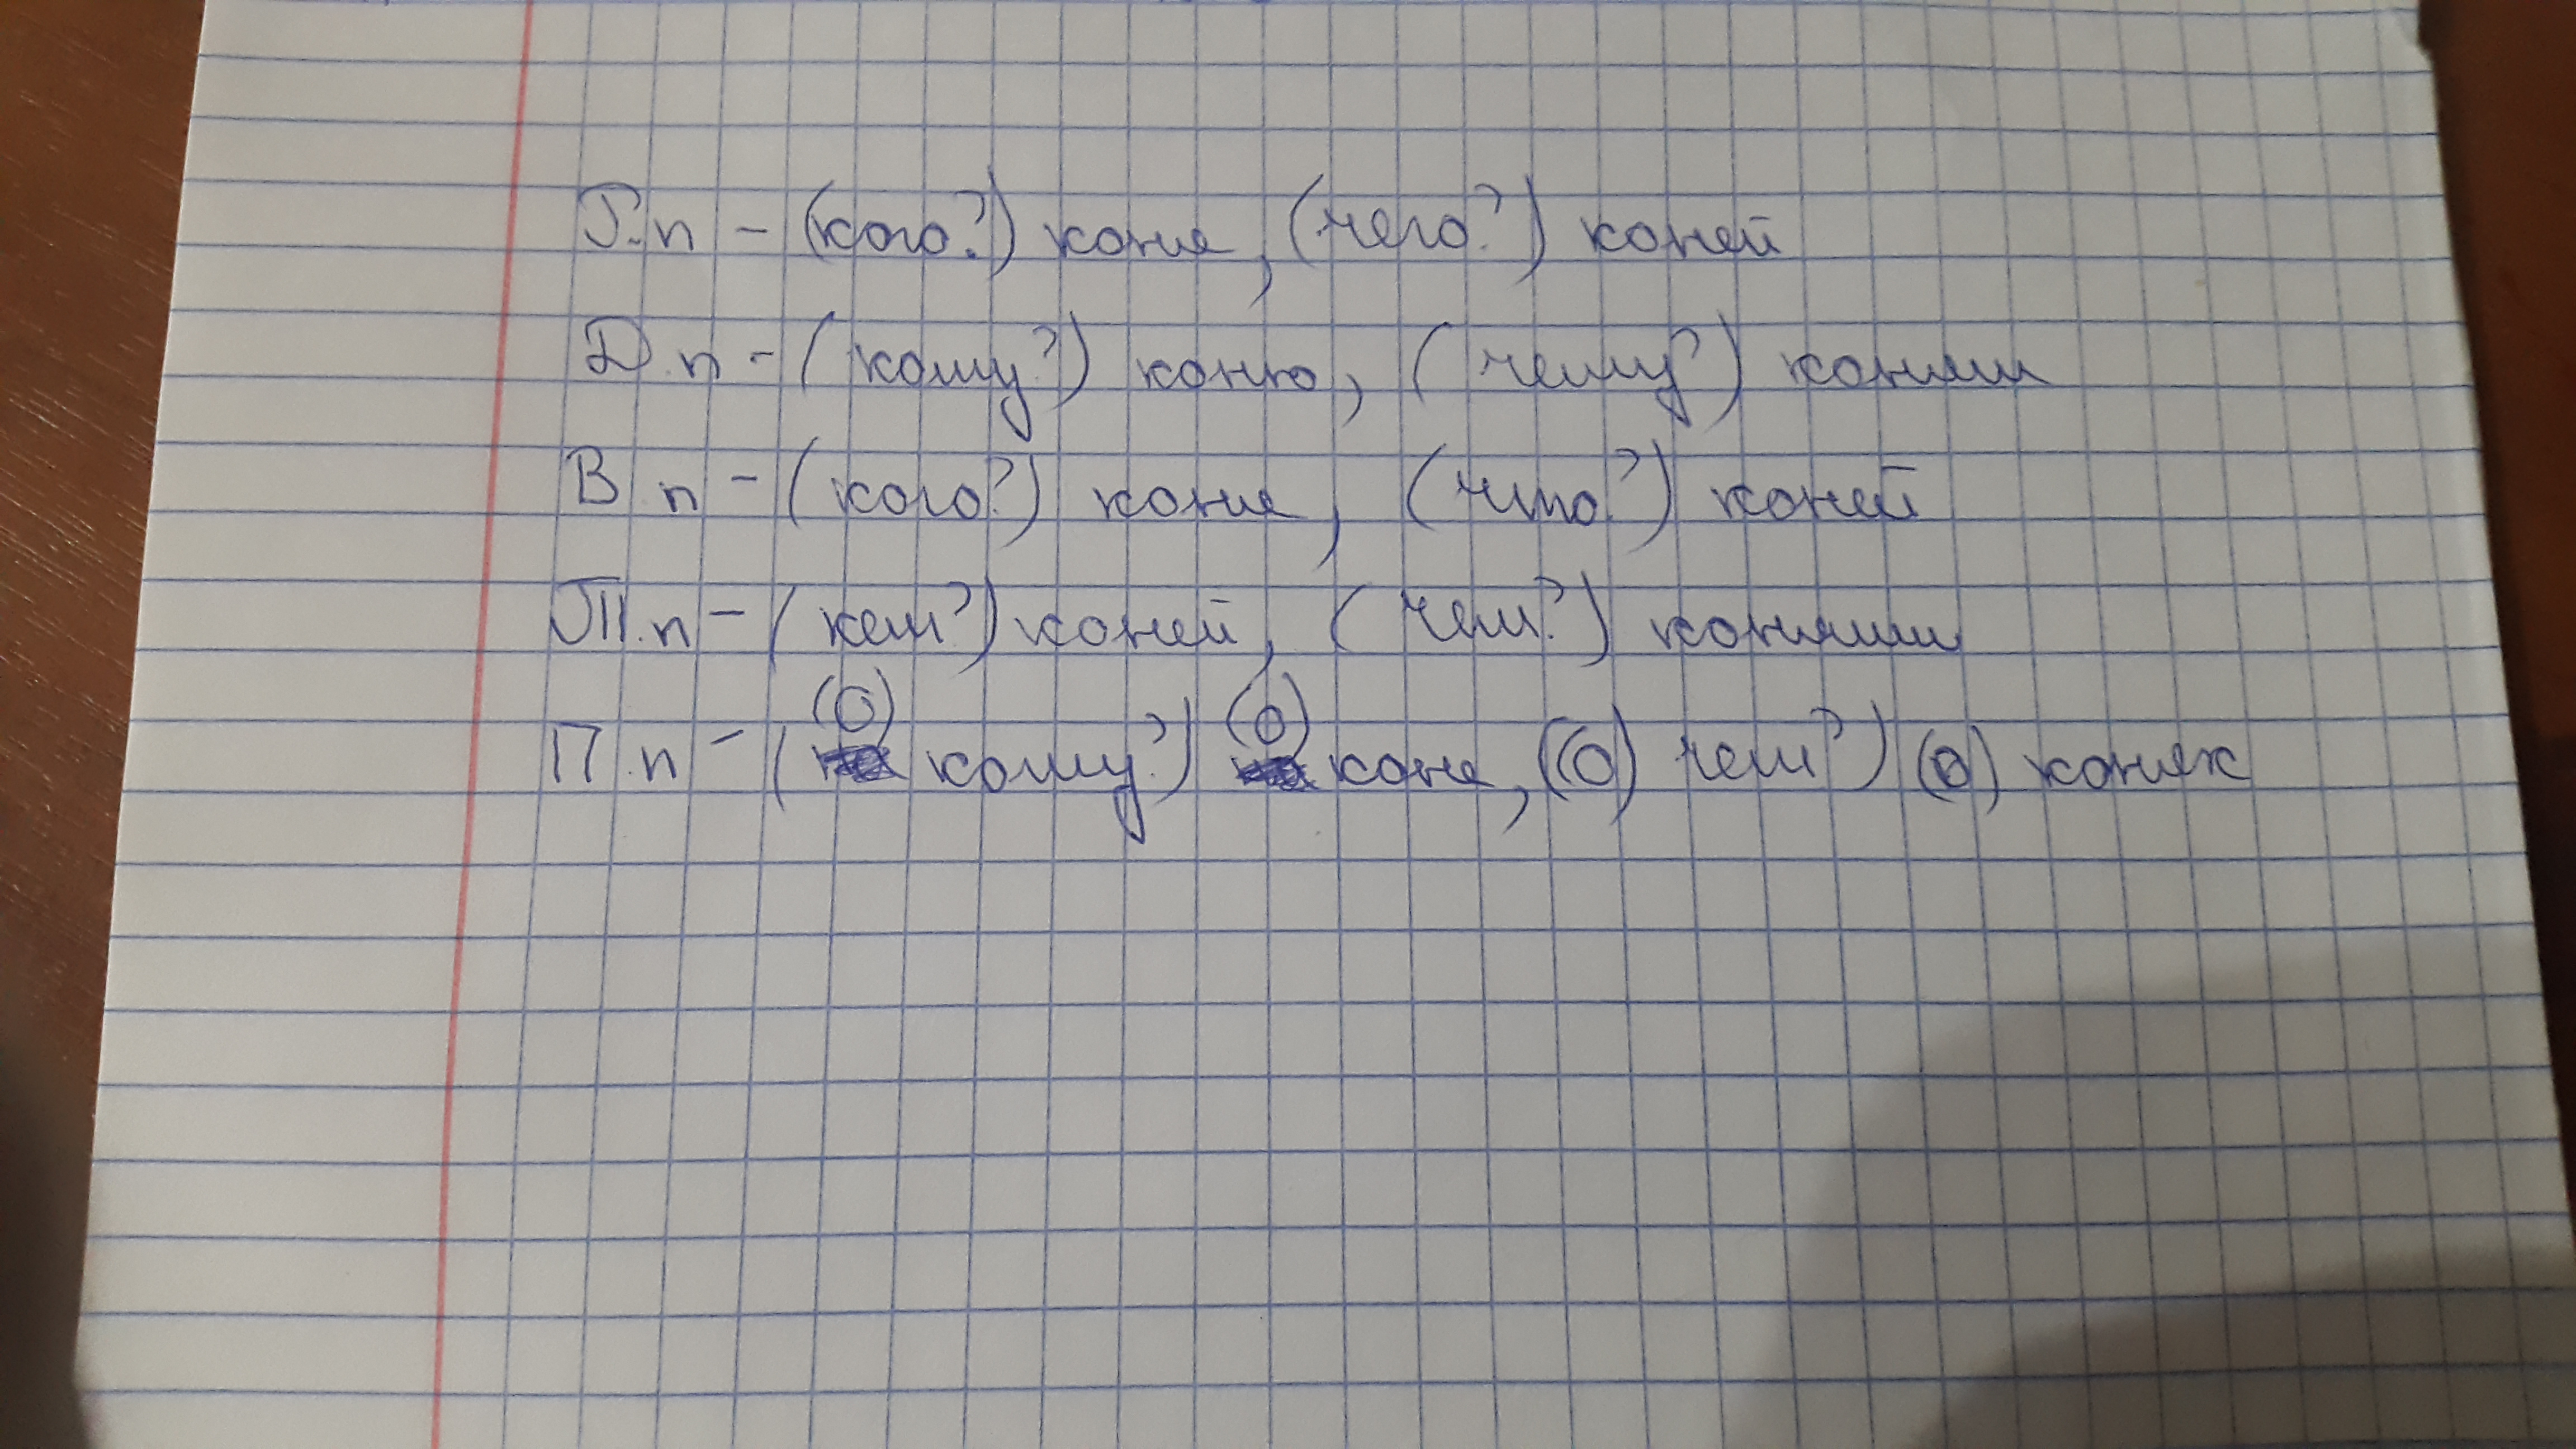 Р.п - (кого?) коня, (чего?) коней
Д.п - (кому?) коню, (чему?) коням
В.п - (кого?) коня, (что?) коней
Т.п - (кем?) коней, (чем?) конями
П.п - ((о) кому?) (о) коне, ((о) чем?) (о) конях